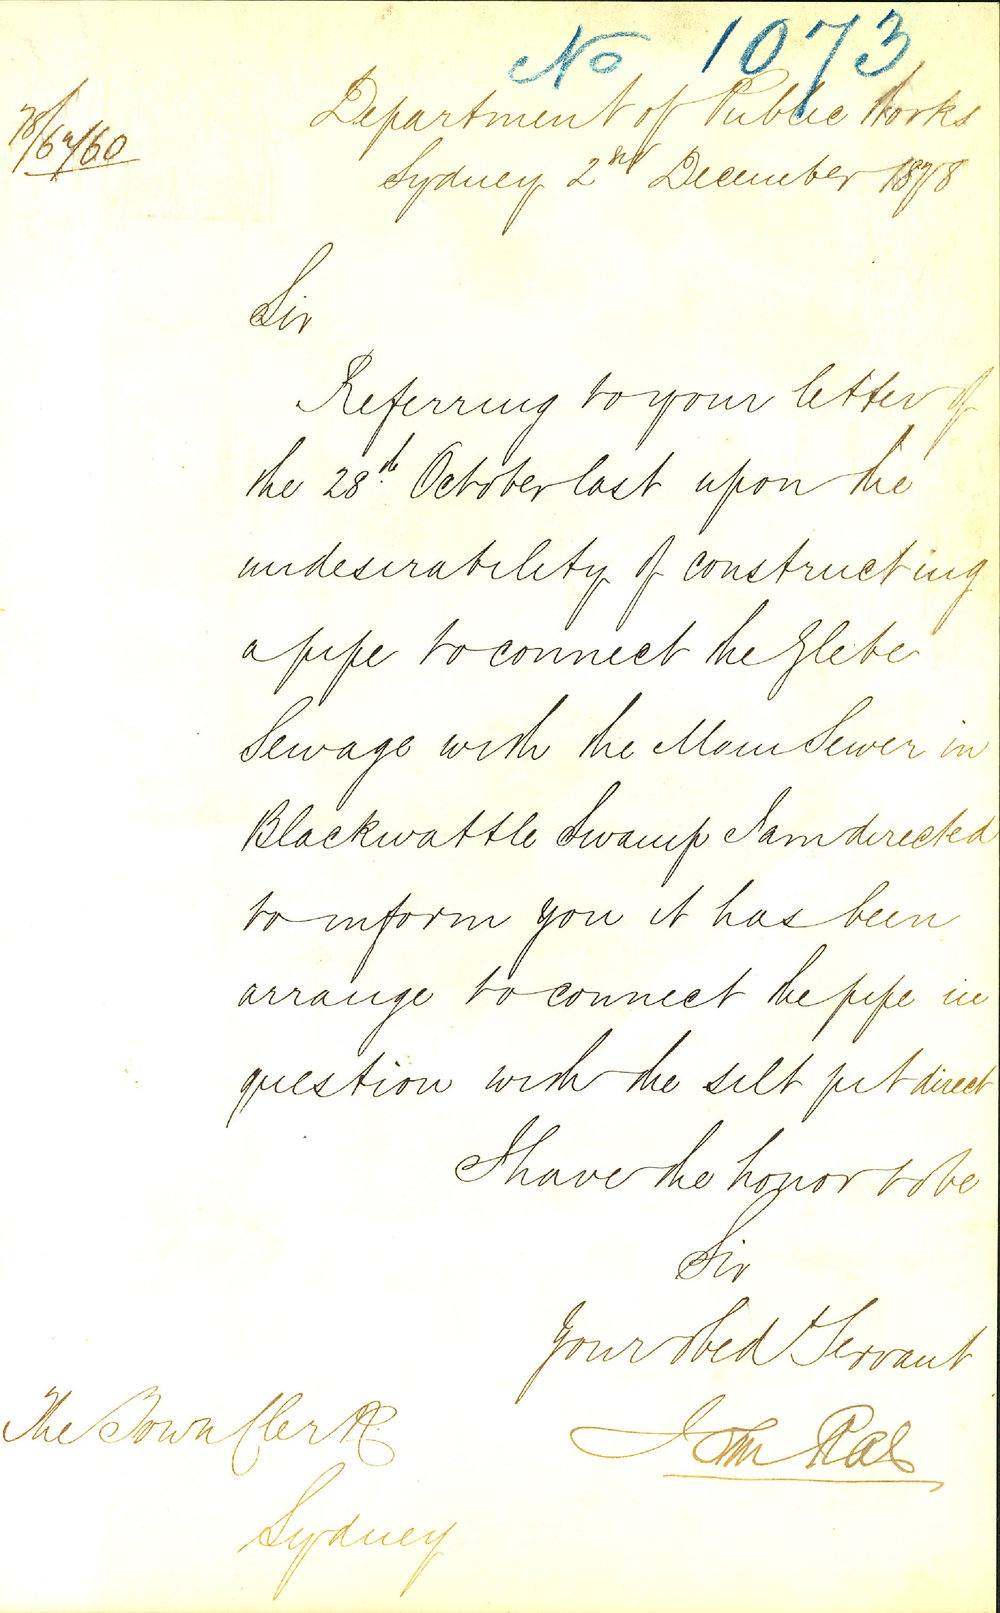 No 1073
Department of Public Works
Sydney 2nd December 1878
Sir
Referring to your letter of
the 28th October last upon the
undesirability of constructing
a pipe to connect the Glebe
Sewage with the Main Sewer in
Blackwattle Swamp I am directed
to inform you it has been
arrange to connect the pipe in
question with the silt pit direct
I have the honor to be
Sir
Your obed t Servant
John Rae
The Town Clerk
Sydney